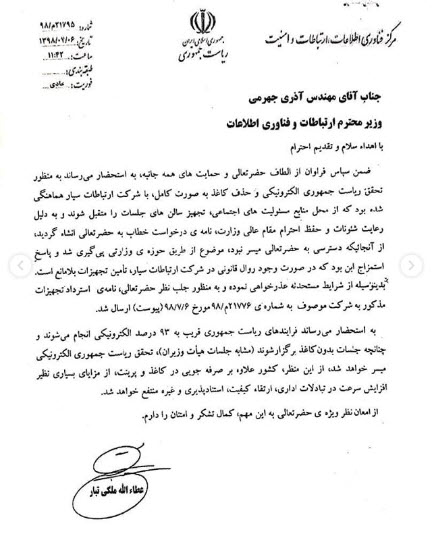 شماره: ۹۸/م۲۱۷۹۵
تاریخ: ۱۳۹۸/۰۷/۰۶
ساعت: ۱۱:۴۲
طبقه‌بندی:
فوریت: عادی
جمهوری اسلامی ایران
ریاست جمهوری
مرکز فناوری اطلاعات، ارتباطات و امنیت
جناب آقای مهندس آذری جهرمی
وزیر محترم ارتباطات و فناوری اطلاعات
با اهداء سلام و تقدیم احترام
ضمن سپاس فراوان از الطاف حضرتعالی و حمایت های همه جانبه، به استحضار می‌رساند به منظور
تحقق ریاست جمهوری الکترونیکی و حذف کاغذ به صورت کامل، با شرکت ارتباطات سیار هماهنگی
شده بود که از محل منابع مسئولیت های اجتماعی، تجهیز سالن های جلسات را متقبل شوند و به دلیل
رعایت شئونات و حفظ احترام مقام عالی وزارت، نامه ی درخواست خطاب به حضرتعالی انشاء گردید،
از آنجائیکه دسترسی به حضرتعالی میسر نبود، موضوع از طریق حوزه ی وزارتی پی‌گیری شد و پاسخ
استمزاج این بود که در صورت وجود روال قانونی در شرکت ارتباطات سیار، تأمین تجهیزات بلامانع است.
بدینوسیله از شرایط مستحدثه عذرخواهی نموده و به منظور جلب نظر حضرتعالی، نامه‌ی استرداد تجهیزات
مذکور به شرکت موصوف به شماره ی ۹۸/م۲۱۷۷۶ مورخ ۹۸/۷/۶ (پیوست) ارسال شد.
به استحضار می‌رساند فرایندهای ریاست جمهوری قریب به ۹۳ درصد الکترونیکی انجام می‌شوند و
چنانچه جلسات بدون کاغذ برگزار شوند (مشابه جلسات هیأت وزیران)، تحقق ریاست جمهوری الکترونیکی
میسر خواهد شد، از این منظر، کشور علاوه بر صرفه جویی در کاغذ و پرینت، از مزایای بسیاری نظیر
افزایش سرعت در تبادلات اداری، ارتقاء کیفیت، استنادپذیری و غیره منتفع خواهد شد.
از امعان نظر ویژه ی حضرتعالی به این مهم، کمال تشکر و امتنان را دارم.
عطاءالله ملکی تبار